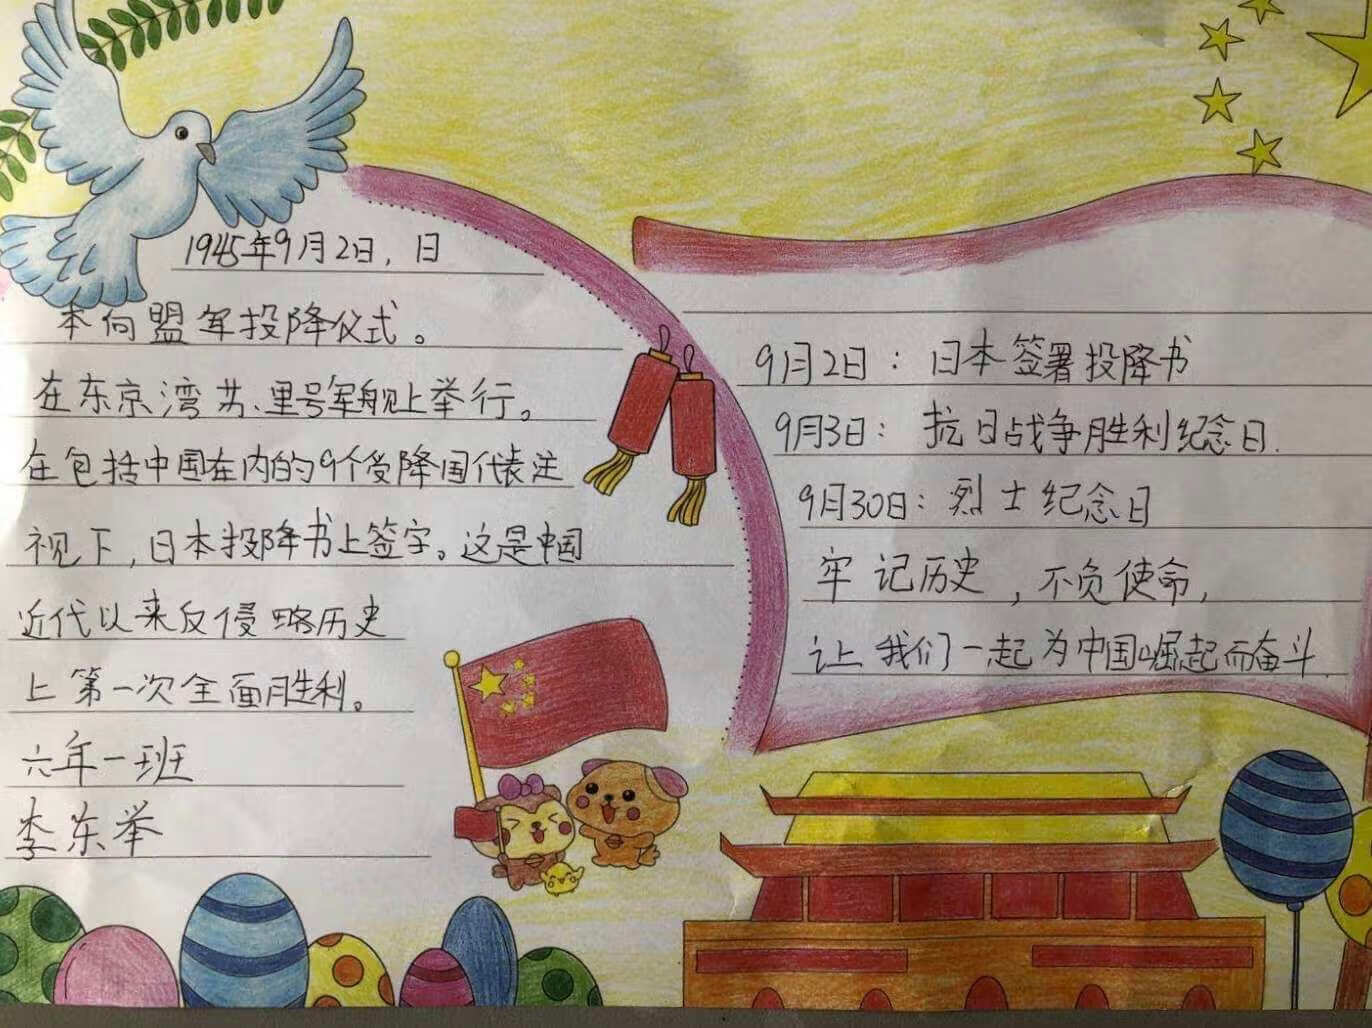 1945年9月2日，日
本向盟军投降仪式。
在东京湾苏里号军舰上举行。
在包括中国在内的9个受降国代表注
视下，日本投降书上签字。这是中国
近代以来反侵略历史
上第一次全面胜利。
六年一班
李东举
9月2日：日本签署投降书
9月3日：抗日战争胜利纪念日.
9月30日：烈士纪念日
牢记历史，不负使命，
让我们一起为中国崛起而奋斗